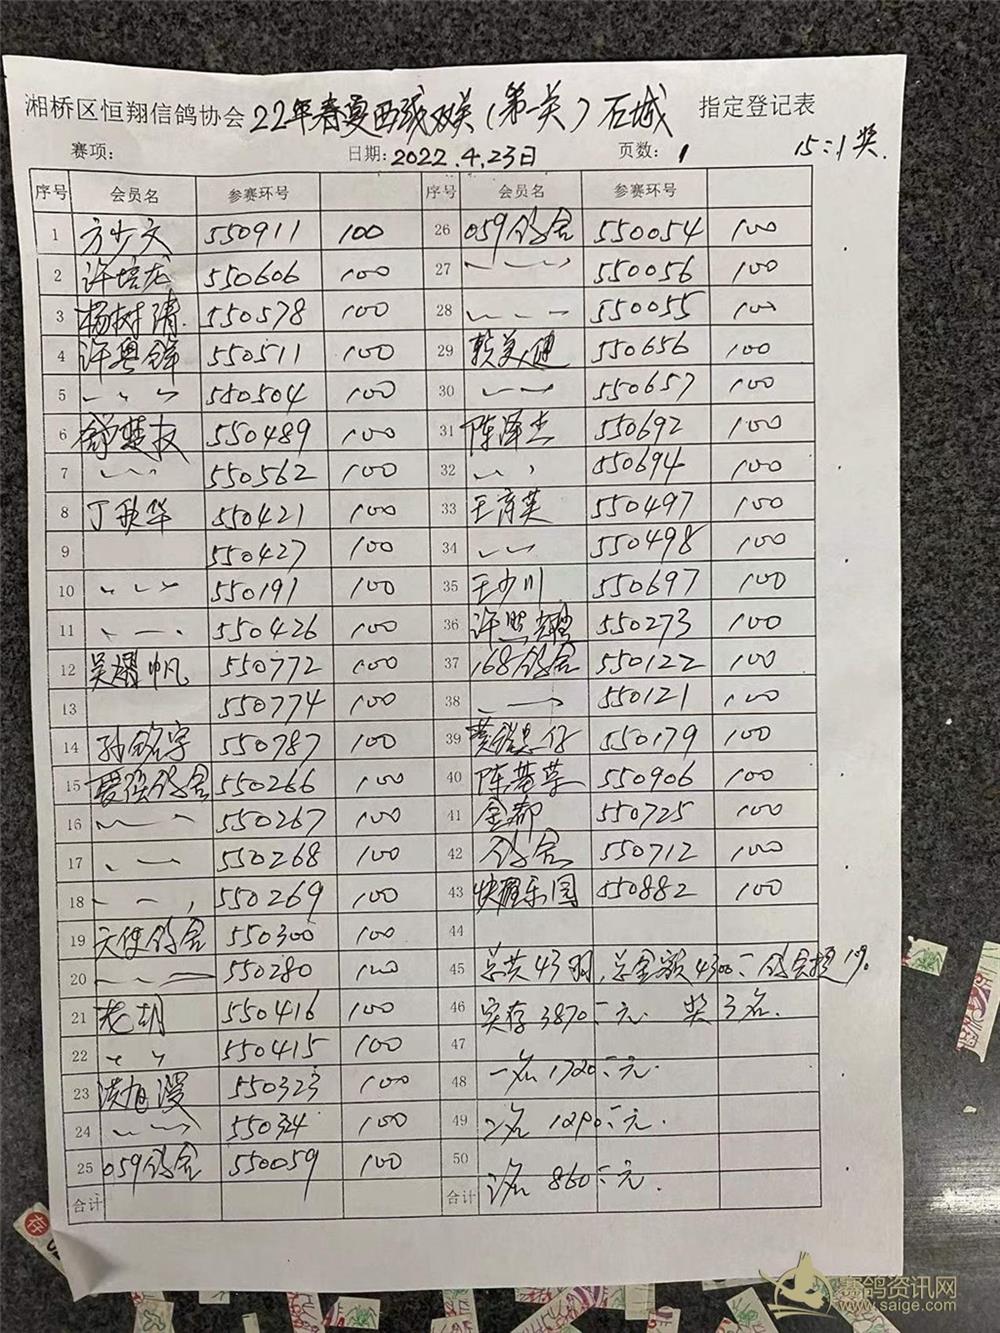 湘桥区恒翔信鸽协会 22年春夏西线双关(第一关)石城 指定登记表
赛项: 日期: 2022.4.23日 页数: 1 15:1奖.
序号 会员名 参赛环号 序号 会员名 参赛环号
1 方少文 550911 100 26 059鸽舍 550054 100
2 许培龙 550606 100 27 〃 〃 550056 100
3 杨树清 550578 100 28 〃 〃 550055 100
4 许粤锋 550511 100 29 赖美健 550656 100
5 〃 〃 〃 550504 100 30 〃 〃 550657 100
6 楚权 550489 100 31 陈泽杰 550692 100
7 〃 〃 550562 100 32 〃 〃 550694 100
8 丁秋华 550421 100 33 王育英 550497 100
9 550427 100 34 〃 〃 550498 100
10 〃 〃 〃 550191 100 35 王少川 550697 100
11 〃 〃 550426 100 36 许照 550273 100
12 吴帆 550772 100 37 168鸽舍 550122 100
13 550774 100 38 〃 〃 550121 100
14 孙铭宇 550787 100 39 黄仔 550179 100
15 鸽舍 550266 100 40 陈 550906 100
16 〃 〃 550267 100 41 金都 550725 100
17 〃 〃 550268 100 42 鸽舍 550712 100
18 〃 〃 〃 550269 100 43 快乐园 550882 100
19 天使鸽舍 550300 100 44
20 〃 〃 550280 100 45 总共43羽,总金额4300元 鸽会提1%
21 老胡 550416 100 46 实存3870元 奖3名.
22 〃 〃 550415 100 47
23 洪旭 550323 100 48 一名1720元.
24 〃 〃 550324 100 49 2名 1290元.
25 059鸽舍 550059 100 50
合计 合计 3名 860元.
存
赛鸽资讯网
www.saige.com